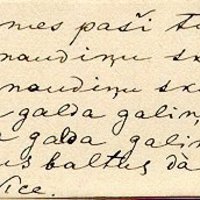 mes paši tu
naudiņu sk
naudiņu sk
galda galiņ
galda galiņ
us baltus dā
Vīce.